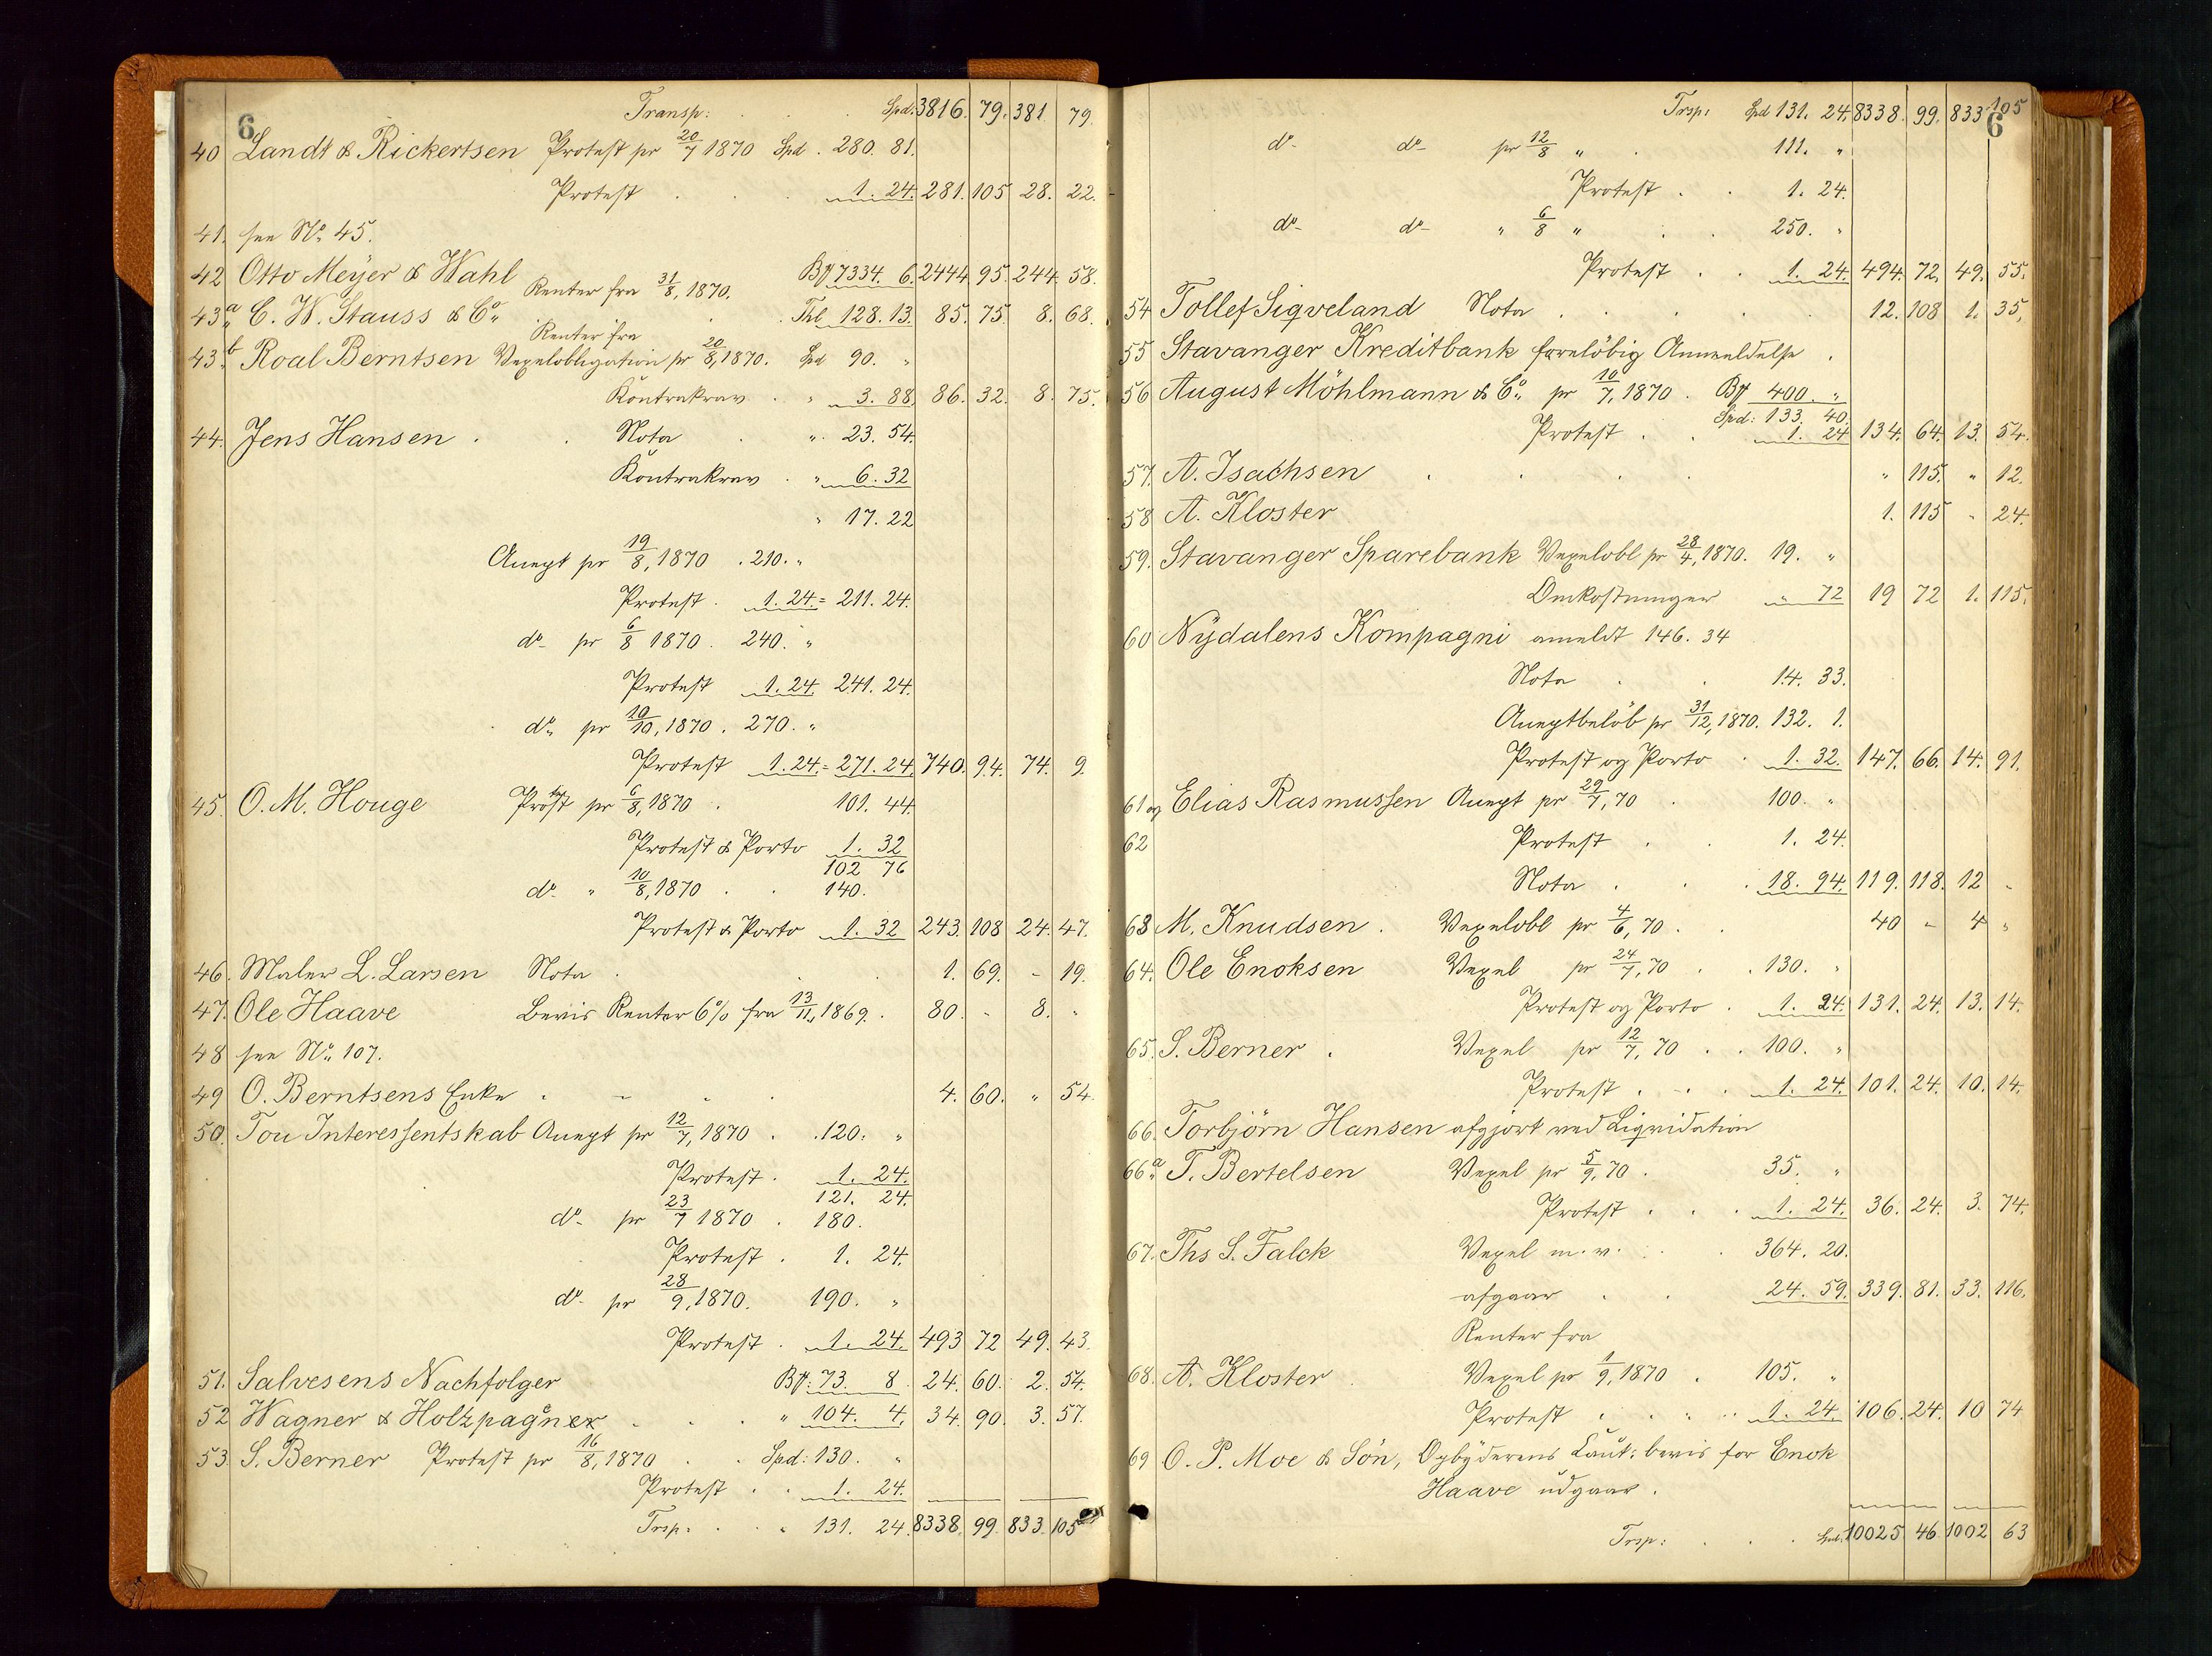 6
Transp: Spd: 3816. 79. 381. 79.
40 Landt & Rickertsen Protest pr 20/7 1870 Spd. 280. 81.
Protest 1. 24. 281. 105 28. 22.
41. see No. 45.
42 Otto Meyer & Wahl Renter fra 31/8, 1870. B# 7334. 6. 2444. 95. 244. 58.
43a C. W. Stauss & Co. Thl 128. 13. 85. 75. 8. 68.
Renter fra
43b Roal Berntsen Vexelobligation pr 20/8, 1870. Spd 90. "
Kontrakrav " 3. 88. 86. 32. 8. 75.
44. Jens Hansen Nota " 23. 54.
Kontrakrav " 6. 32
" 17. 22
Accept pr 19/8, 1870 . 210. "
Protest. 1. 24. = 211. 24.
do pr 6/8 1870. 240. "
Protest 1. 24. 241. 24.
do pr 10/10, 1870. 270. "
Protest 1. 24. = 271. 24. 740. 94. 74. 9.
45. O. M. Houge Prost pr 6/8, 1870 . 101. 44.
Protest & Porto 1. 32
102 76
do " 10/8, 1870 . . 140.
Protest & Porto 1. 32 243. 108 24. 47.
46. Maler L. Larsen Nota . 1. 69. - 19.
47. Ole Haave Bevis Renter 6% fra 13/11, 1869. 80. - 8. "
48 see No. 107.
49 O. Berntsens Enke 4. 60. " 54.
50. Tou Interessentskab Accept pr 12/7, 1870 . .120. "
Protest. 1. 24.
121. 24.
do pr 23/7 1870 . 180.
Protest . 1. 24.
do pr 28/9, 1870. 190. "
Protest . 1. 24. 493 72 49. 43.
51. Salvesens Nachfolger B#: 73. 8 24. 60. 2. 54.
52 Wagner & Holzpagner " 104. 4. 34. 90. 3. 57.
53. S. Berner Protest pr 16/8, 1870 . . Spd: 130. "
Protest . . 1. 24.
Trsp: . . " 131. 24. 8338. 99. 833. 105
6
Trsp: Spd 131. 24. 8338. 99. 833. 105
do do pr 12/8 " . 111. "
Protest . . 1. 24.
do do " 6/8 " . . 250. "
Protest . . 1. 24. 494. 72. 49. 55.
54 Tollef Sigveland Nota . 12. 108 1. 35.
55 Stavanger Kreditbank foreløbig Anmeldelse .
56 August Möhlmann & Co. pr 10/7, 1870 . B# 400. "
Spd: 133. 40.
Protest . . 1. 24 134. 64. 13. 54.
57. A. Isachsen " 115. " 12.
58 A. Kloster 1. 115 " 24.
59. Stavanger Sparebank Vexelobl pr 28/4, 1870. 19. "
Omkostninger " 72 19 72 1. 115.
60 Nydalens Kompagni anmeldt 146. 34
Nota . . 14. 33.
Acceptbelöb pr 31/12, 1870. 132. 1.
Protest og Porto . 1. 32. 147. 66. 14. 91.
61 og Elias Rasmussen Accept pr 29/7, 70 . 100. "
62 Protest . . 1. 24.
Nota . . . 18. 94. 119. 118. 12 -
63 M. Knudsen . Vexelobl pr 4/6, 70 . . 40 - 4 "
64. Ole Enoksen Vexel pr 24/7, 70 . . 130. "
Protest og Porto . 1. 24. 131. 24. 13. 14.
65. S. Berner . Vexel pr 12/7, 70 . . 100. "
Protest . . . 1. 24. 101. 24. 10. 14.
66. Torbjörn Hansen afgjort ved Liqvidation
66a T. Bertelsen Vexel pr 5/9, 70 . 35. "
Protest . . . 1. 24. 36. 24. 3. 74.
67. Ths S. Falck Vexel m. v. . . 364. 20.
afgaar . . 24. 59. 339. 81. 33. 116.
Renter fra
68. A. Kloster Vexel pr 1/9, 1870 . 105. "
Protest . . . 1. 24. 106. 24. 10 74
69 O. P. Moe & Sön, Opbyderens Kaut: bevis for Enok
Haave udgaar .
Trsp: . . . Spd. 10025 46 1002 63